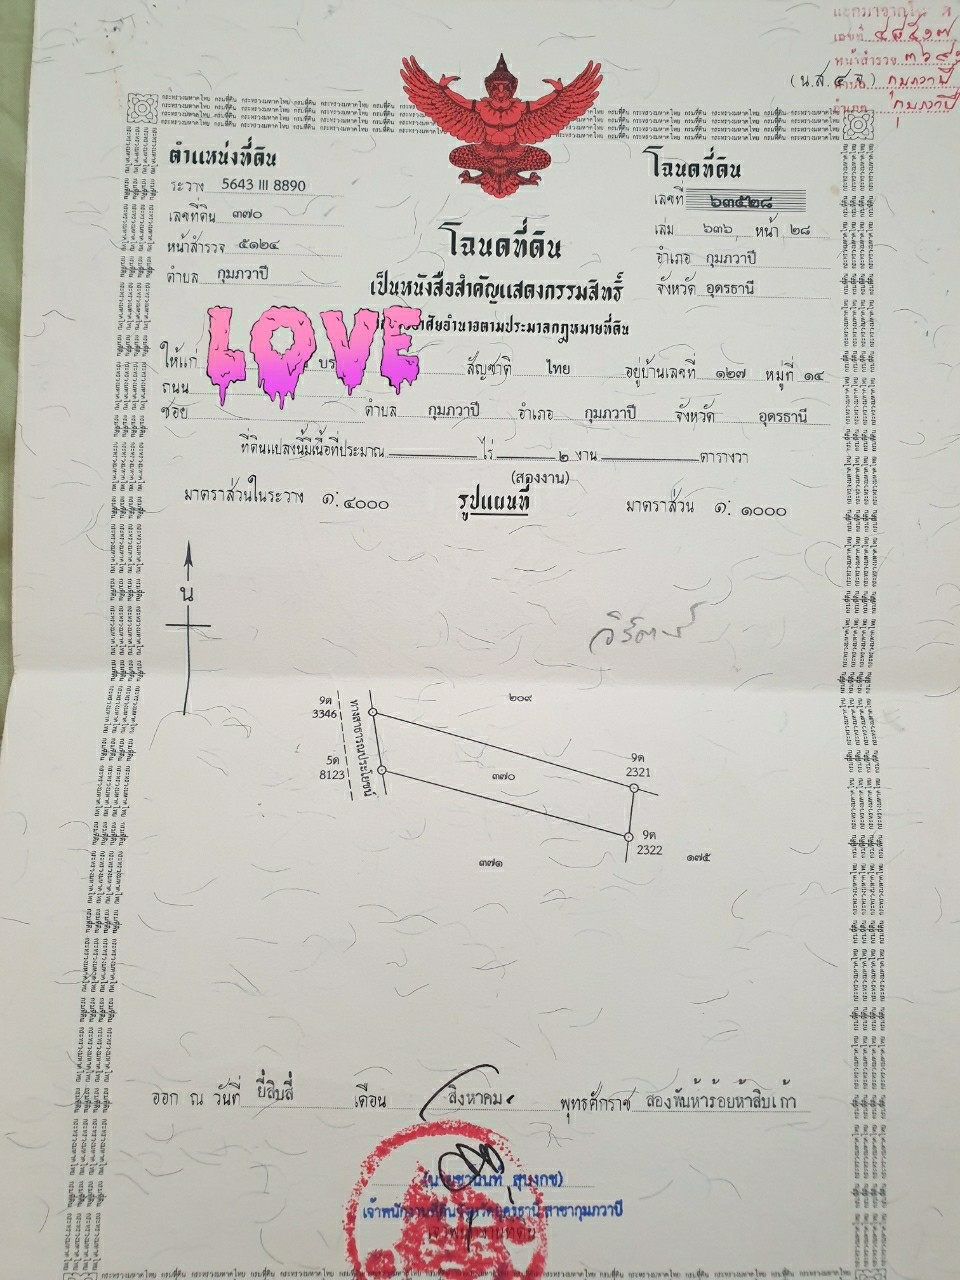 เลขที่ ๔๘๕๑๗
หน้าสำรวจ
(น.ส. ๔ จ.) กุมภวาปี
กุมภวาปี
ตำแหน่งที่ดิน
ระวาง 5643 III 8890
เลขที่ดิน ๓๗๐
หน้าสำรวจ ๕๑๒๔
ตำบล กุมภวาปี
โฉนดที่ดิน
เลขที่ ๖๓๕๒๘
เล่ม ๖๓๖ หน้า ๒๘
อำเภอ กุมภวาปี
จังหวัด อุดรธานี
โฉนดที่ดิน
เป็นหนังสือสำคัญแสดงกรรมสิทธิ์
อาศัยอำนาจตามประมวลกฎหมายที่ดิน
LOVE
ให้แก่ บร สัญชาติ ไทย อยู่บ้านเลขที่ ๑๒๗ หมู่ที่ ๑๔
ถนน
ซอย ตำบล กุมภวาปี อำเภอ กุมภวาปี จังหวัด อุดรธานี
ที่ดินแปลงนี้มีเนื้อที่ประมาณ ไร่ ๒ งาน ตารางวา
(สองงาน)
มาตราส่วนในระวาง ๑: ๔๐๐๐ รูปแผนที่ มาตราส่วน ๑: ๑๐๐๐
น
๒๐๙
9ต
3346
ทางสาธารณประโยชน์
5ต
8123
๓๗๐
9ต
2321
9ต
2322
๓๗๑
๑๗๕
ออก ณ วันที่ ยี่สิบสี่ เดือน สิงหาคม พุทธศักราช สองพันห้าร้อยห้าสิบเก้า
เจ้าพนักงานที่ดินจังหวัดอุดรธานี สาขากุมภวาปี
เจ้าพนักงานที่ดิน
กระทรวงมหาดไทย กรมที่ดิน